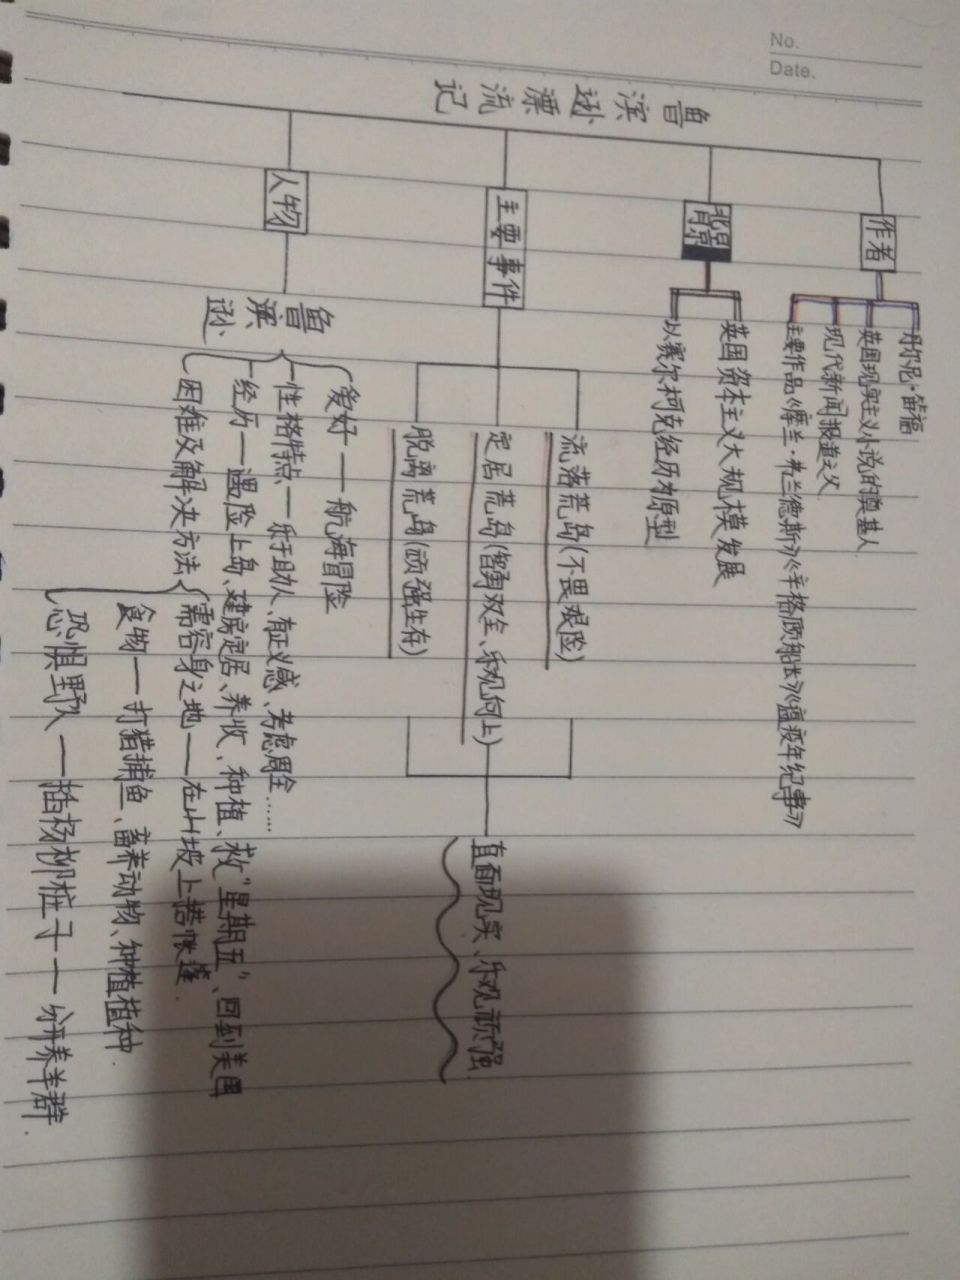 No.
Date.
鲁滨逊漂流记
作者
丹尔尼·笛福
英国现实主义小说的奠基人
现代新闻报道之父
主要作品《摩兰·弗兰德斯》《辛格顿船长》《瘟疫年纪事》
背景
英国资本主义大规模发展
以赛尔柯克经历为原型
主要事件
流落荒岛(不畏艰险)
定居荒岛(智勇双全、乐观向上)
脱离荒岛(顽强生存)
直面现实、乐观顽强
人物
鲁滨逊
爱好——航海冒险
性格特点——乐于助人、有正义感、考虑周全……
经历——遇险上岛、建房定居、养收、种植、救“星期五”、回到美国
困难及解决方法
需容身之地——在山坡上搭帐篷.
食物——打猎捕鱼、畜养动物、种植植种.
恐惧野人——插杨柳桩子——分开养羊群.